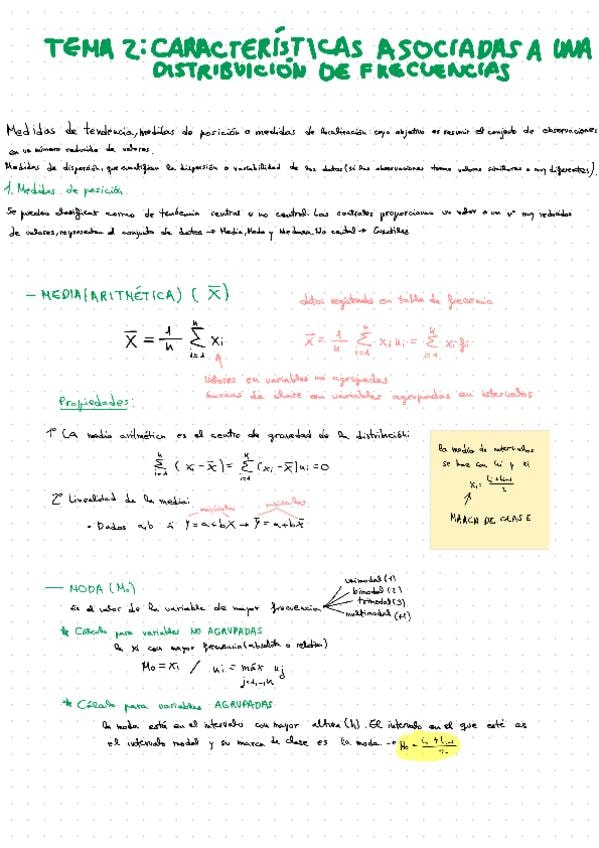 TEMA 2: CARACTERÍSTICAS ASOCIADAS A UNA
DISTRIBUICIÓN DE FRECUENCIAS
Medidas de tendencia, medidas de posición o medidas de localización: cuyo objetivo es resumir el conjunto de observaciones
en un número reducido de valores.
Medidas de dispersión, que cuantifican la dispersión o variabilidad de los datos (si las observaciones toman valores similares o muy diferentes).
1. Medidas de posición
Se pueden clasificar como de tendencia central o no central: Las centrales proporcionan un valor o un nº muy reducido
de valores, representan el conjunto de datos → Media, Moda y Mediana. No central → Cuantiles
— MEDIA (ARITMÉTICA) ( X̄ )
datos registrados en tabla de frecuencia
X̄ = 1/n Σ xi
X̄ = 1/n Σ xi ni = Σ xi fi
Valores en variables no agrupadas
marcas de clase en variables agrupadas en intervalos
Propiedades:
1ª La media aritmética es el centro de gravedad de la distribución:
Σ (xi - X̄) = Σ (xi - X̄) ni = 0
2ª Linealidad de la media:
• Dados a,b si Y = a + bX → Ȳ = a + bX̄
la media de intervalos
se hace con Li y
MARCA DE CLASE
— MODA (Mo)
Es el valor de la variable de mayor frecuencia
unimodal (1)
bimodal (2)
trimodal (3)
multimodal (+1)
* Cálculo para variables NO AGRUPADAS
la xi con mayor frecuencia (absoluta o relativa)
Mo = xi / ni = máx nj
j=1,...,k
* Cálculo para variables AGRUPADAS
la moda está en el intervalo con mayor altura (h). El intervalo en el que esté es
el intervalo modal y su marca de clase es la moda →